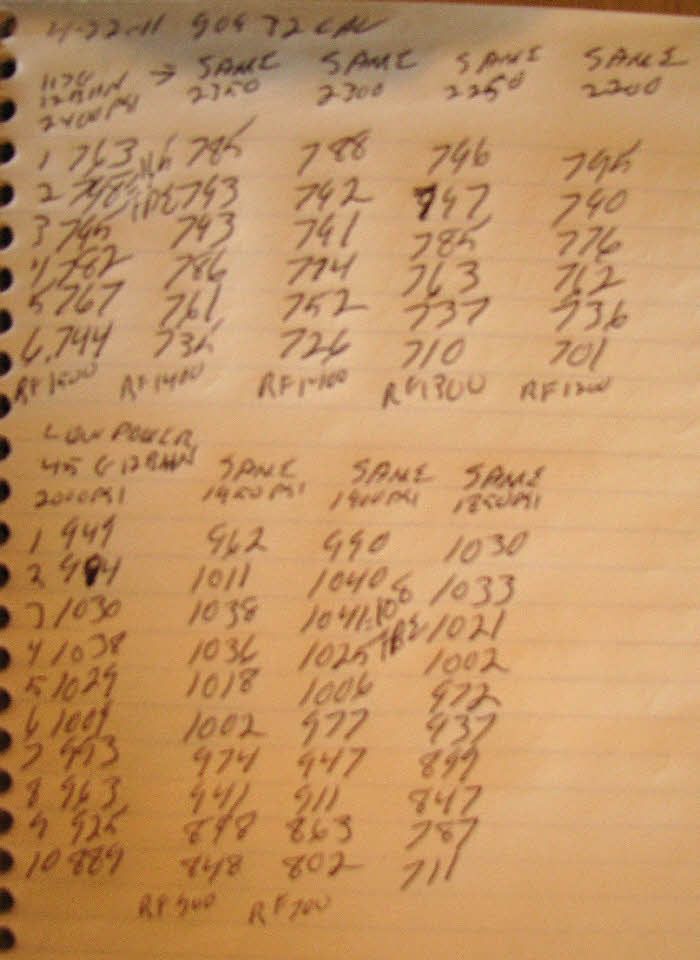 4-22-11 909 72 CAL
117G → SAME SAME SAME SAME
12BHN 2350 2300 2250 2200
2400 PSI
1 763 785 788 796 795
2 798 793 792 797 790
3 795 793 791 785 776
4 782 786 774 763 762
5 767 761 752 737 736
6. 744 735 726 710 701
RF1500 RF1400 RF1400 RF1300 RF1200
LOW POWER
45 G 12BHN SAME SAME SAME
2000 PSI 1950 PSI 1900 PSI 1850 PSI
1 949 962 990 1030
2 994 1011 1040 1033
3 1030 1038 1041 .108 1021
4 1038 1036 1025 1002
5 1029 1018 1006 972
6 1009 1002 977 937
7 993 974 947 899
8 963 941 911 847
9 925 898 863 787
10 889 848 802 711
RF 500 RF 700